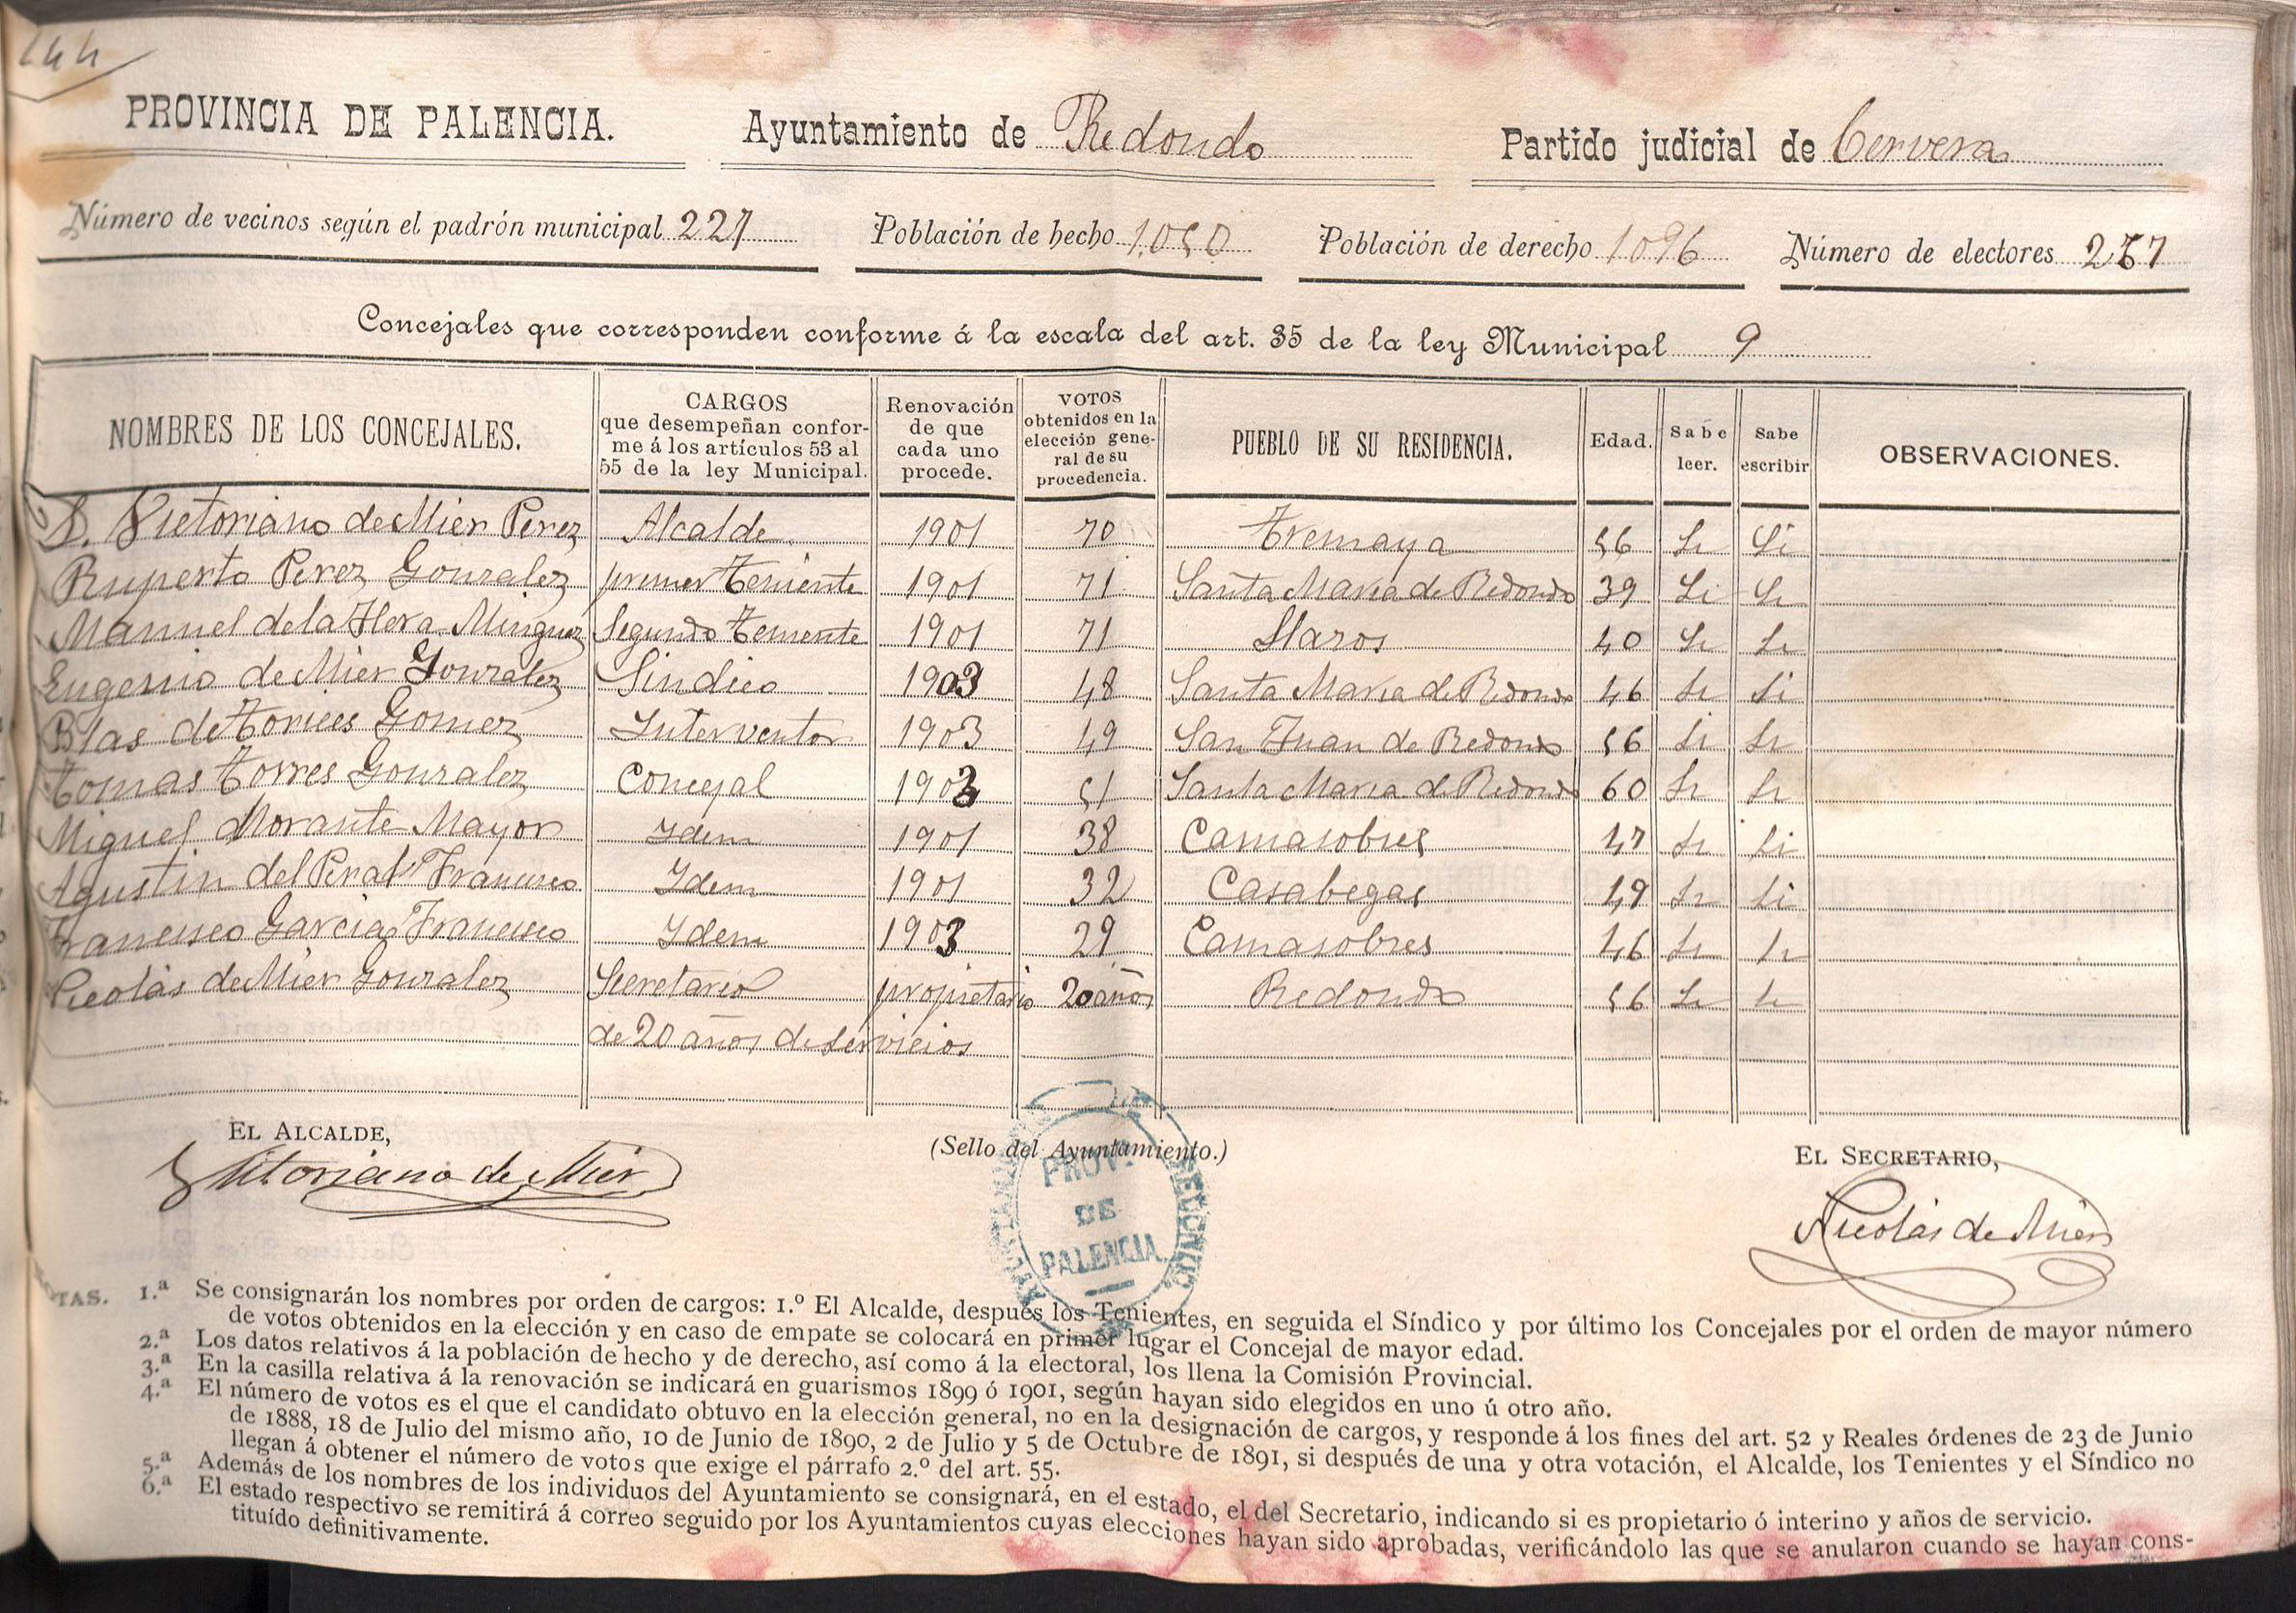 244
PROVINCIA DE PALENCIA. Ayuntamiento de Redondo Partido judicial de Cervera
Número de vecinos según el padrón municipal 227 Población de hecho 1.050 Población de derecho 1096 Número de electores 267
Concejales que corresponden conforme á la escala del art. 35 de la ley Municipal 9
NOMBRES DE LOS CONCEJALES. CARGOS que desempeñan confor- me á los artículos 53 al 55 de la ley Municipal. Renovación de que cada uno procede. VOTOS obtenidos en la elección gene- ral de su procedencia. PUEBLO DE SU RESIDENCIA. Edad. Sabe leer. Sabe escribir OBSERVACIONES.
D. Victoriano de Mier Perez Alcalde 1901 70 Tremaya 56 Si Si
Ruperto Perez Gonzalez primer Teniente 1901 71 Santa Maria de Redondo 39 Si Si
Manuel de la Hera Minguez Segundo Teniente 1901 71 Llazos 40 Si Si
Eugenio de Mier Gonzalez Sindico 1903 48 Santa Maria de Redondo 46 Si Si
Blas de Torices Gomez Interventor 1903 49 San Juan de Redondo 56 Si Si
Tomas Torres Gonzalez Concejal 1903 51 Santa Maria de Redondo 60 Si Si
Miguel Morante Mayor Idem 1901 38 Camasobres 47 Si Si
Agustin del Peral Francisco Idem 1901 32 Casabegas 49 Si Si
Francisco Garcia Francisco Idem 1903 29 Camasobres 46 Si Si
Nicolás de Mier Gonzalez Secretario propietario 20 años Redondo 56 Si Si
de 20 años de servicios
EL ALCALDE, (Sello del Ayuntamiento.) EL SECRETARIO,
Vitoriano de Mier
Nicolás de Mier
PROV. DE PALENCIA
NOTAS. 1.ª Se consignarán los nombres por orden de cargos: 1.º El Alcalde, después los Tenientes, en seguida el Síndico y por último los Concejales por el orden de mayor número
de votos obtenidos en la elección y en caso de empate se colocará en primer lugar el Concejal de mayor edad.
2.ª Los datos relativos á la población de hecho y de derecho, así como á la electoral, los llena la Comisión Provincial.
3.ª En la casilla relativa á la renovación se indicará en guarismos 1899 ó 1901, según hayan sido elegidos en uno ú otro año.
4.ª El número de votos es el que el candidato obtuvo en la elección general, no en la designación de cargos, y responde á los fines del art. 52 y Reales órdenes de 23 de Junio
de 1888, 18 de Julio del mismo año, 10 de Junio de 1890, 2 de Julio y 5 de Octubre de 1891, si después de una y otra votación, el Alcalde, los Tenientes y el Síndico no
llegan á obtener el número de votos que exige el párrafo 2.º del art. 55.
5.ª Además de los nombres de los individuos del Ayuntamiento se consignará, en el estado, el del Secretario, indicando si es propietario ó interino y años de servicio.
6.ª El estado respectivo se remitirá á correo seguido por los Ayuntamientos cuyas elecciones hayan sido aprobadas, verificándolo las que se anularon cuando se hayan cons-
tituído definitivamente.